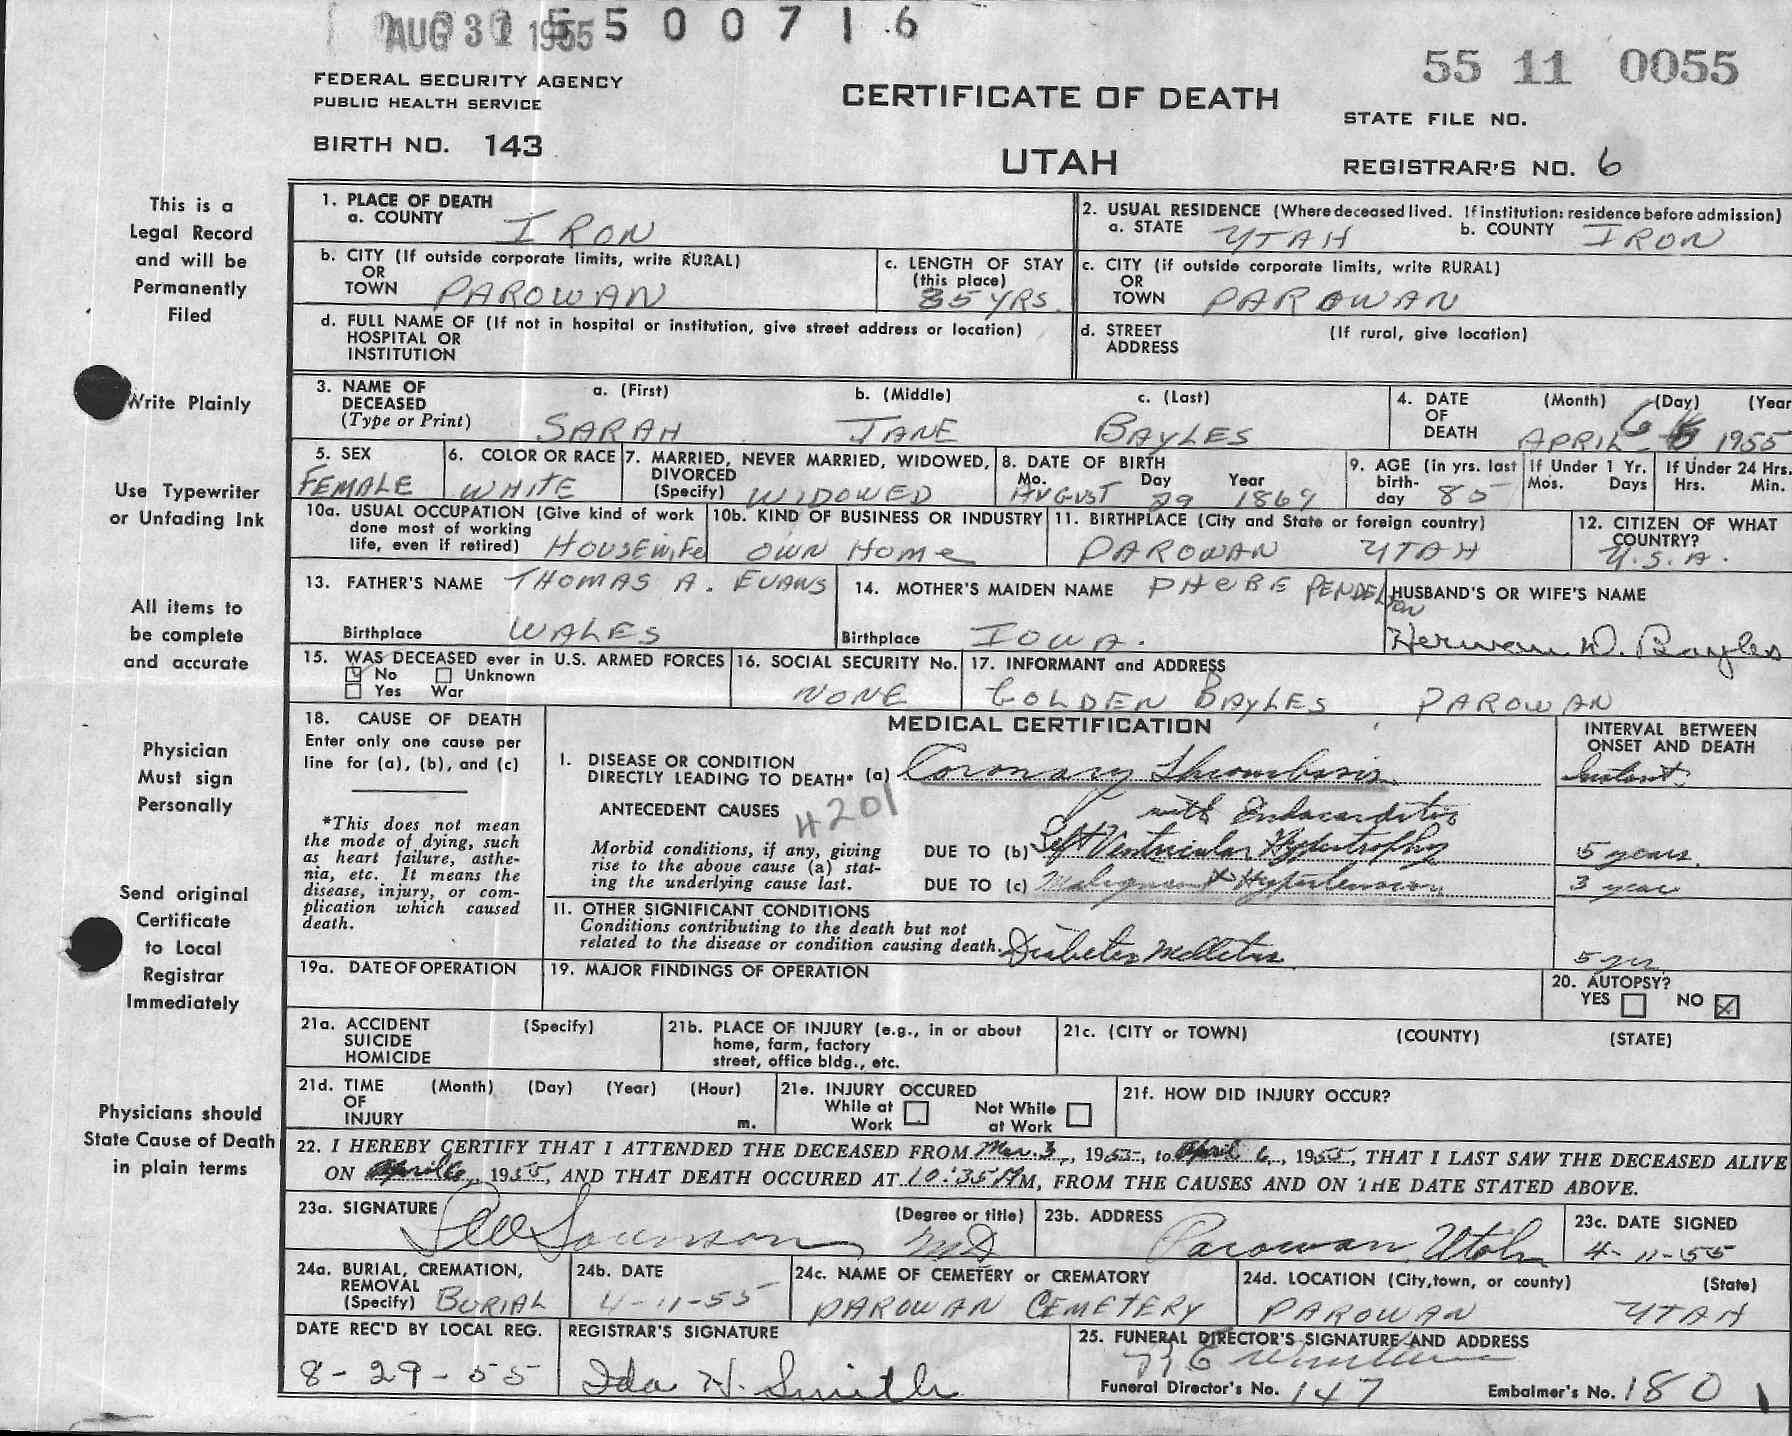 AUG 31 1955 5 5 0 0 7 1 6
55 11 0055
FEDERAL SECURITY AGENCY
PUBLIC HEALTH SERVICE
CERTIFICATE OF DEATH
STATE FILE NO.
BIRTH NO. 143
UTAH
REGISTRAR'S NO. 6
This is a
Legal Record
and will be
Permanently
Filed
Write Plainly
Use Typewriter
or Unfading Ink
All items to
be complete
and accurate
Physician
Must sign
Personally
Send original
Certificate
to Local
Registrar
Immediately
Physicians should
State Cause of Death
in plain terms
1. PLACE OF DEATH
a. COUNTY IRON
2. USUAL RESIDENCE (Where deceased lived. If institution: residence before admission)
a. STATE UTAH b. COUNTY IRON
b. CITY (If outside corporate limits, write RURAL)
OR
TOWN PAROWAN
c. LENGTH OF STAY
(this place)
85 YRS.
c. CITY (if outside corporate limits, write RURAL)
OR
TOWN PAROWAN
d. FULL NAME OF (If not in hospital or institution, give street address or location)
HOSPITAL OR
INSTITUTION
d. STREET (If rural, give location)
ADDRESS
3. NAME OF a. (First) b. (Middle) c. (Last)
DECEASED
(Type or Print) SARAH JANE BAYLES
4. DATE (Month) (Day) (Year
OF
DEATH APRIL 6 1955
5. SEX
FEMALE
6. COLOR OR RACE
WHITE
7. MARRIED, NEVER MARRIED, WIDOWED,
DIVORCED
(Specify) WIDOWED
8. DATE OF BIRTH
Mo. Day Year
AUGUST 29 1869
9. AGE (in yrs. last
birth-
day 85
If Under 1 Yr.
Mos. Days
If Under 24 Hrs.
Hrs. Min.
10a. USUAL OCCUPATION (Give kind of work
done most of working
life, even if retired) HOUSEWIFE
10b. KIND OF BUSINESS OR INDUSTRY
OWN HOME
11. BIRTHPLACE (City and State or foreign country)
PAROWAN UTAH
12. CITIZEN OF WHAT
COUNTRY?
U.S.A.
13. FATHER'S NAME THOMAS A. EVANS
Birthplace WALES
14. MOTHER'S MAIDEN NAME PHEBE PENDELTON
Birthplace IOWA.
HUSBAND'S OR WIFE'S NAME
Herman D. Bayles
15. WAS DECEASED ever in U.S. ARMED FORCES
No Unknown
Yes War
16. SOCIAL SECURITY No.
NONE
17. INFORMANT and ADDRESS
GOLDEN BAYLES PAROWAN
18. CAUSE OF DEATH
Enter only one cause per
line for (a), (b), and (c)
*This does not mean
the mode of dying, such
as heart failure, asthe-
nia, etc. It means the
disease, injury, or com-
plication which caused
death.
MEDICAL CERTIFICATION
INTERVAL BETWEEN
ONSET AND DEATH
I. DISEASE OR CONDITION
DIRECTLY LEADING TO DEATH* (a) Coronary Thrombosis Instant
ANTECEDENT CAUSES 4201 with Endocarditis
Morbid conditions, if any, giving
rise to the above cause (a) stat-
ing the underlying cause last.
DUE TO (b) Left Ventricular Hypertrophy 5 years.
DUE TO (c) Malignant Hypertension 3 year
II. OTHER SIGNIFICANT CONDITIONS
Conditions contributing to the death but not
related to the disease or condition causing death. Diabetes Mellitus 5 yrs
19a. DATE OF OPERATION
19. MAJOR FINDINGS OF OPERATION
20. AUTOPSY?
YES NO
21a. ACCIDENT (Specify)
SUICIDE
HOMICIDE
21b. PLACE OF INJURY (e.g., in or about
home, farm, factory
street, office bldg., etc.
21c. (CITY or TOWN) (COUNTY) (STATE)
21d. TIME (Month) (Day) (Year) (Hour)
OF
INJURY m.
21e. INJURY OCCURED
While at Work Not While at Work
21f. HOW DID INJURY OCCUR?
22. I HEREBY CERTIFY THAT I ATTENDED THE DECEASED FROM Mar. 3, 1955, to April 6, 1955, THAT I LAST SAW THE DECEASED ALIVE
ON April 6, 1955, AND THAT DEATH OCCURED AT 10:35 AM, FROM THE CAUSES AND ON THE DATE STATED ABOVE.
23a. SIGNATURE (Degree or title) MD
23b. ADDRESS
Parowan, Utah
23c. DATE SIGNED
4-11-55
24a. BURIAL, CREMATION,
REMOVAL
(Specify) BURIAL
24b. DATE
4-11-55
24c. NAME OF CEMETERY or CREMATORY
PAROWAN CEMETERY
24d. LOCATION (City, town, or county) (State)
PAROWAN UTAH
DATE REC'D BY LOCAL REG.
8-29-55
REGISTRAR'S SIGNATURE
Ida H. Smith
25. FUNERAL DIRECTOR'S SIGNATURE AND ADDRESS
Funeral Director's No. 147 Embalmer's No. 180